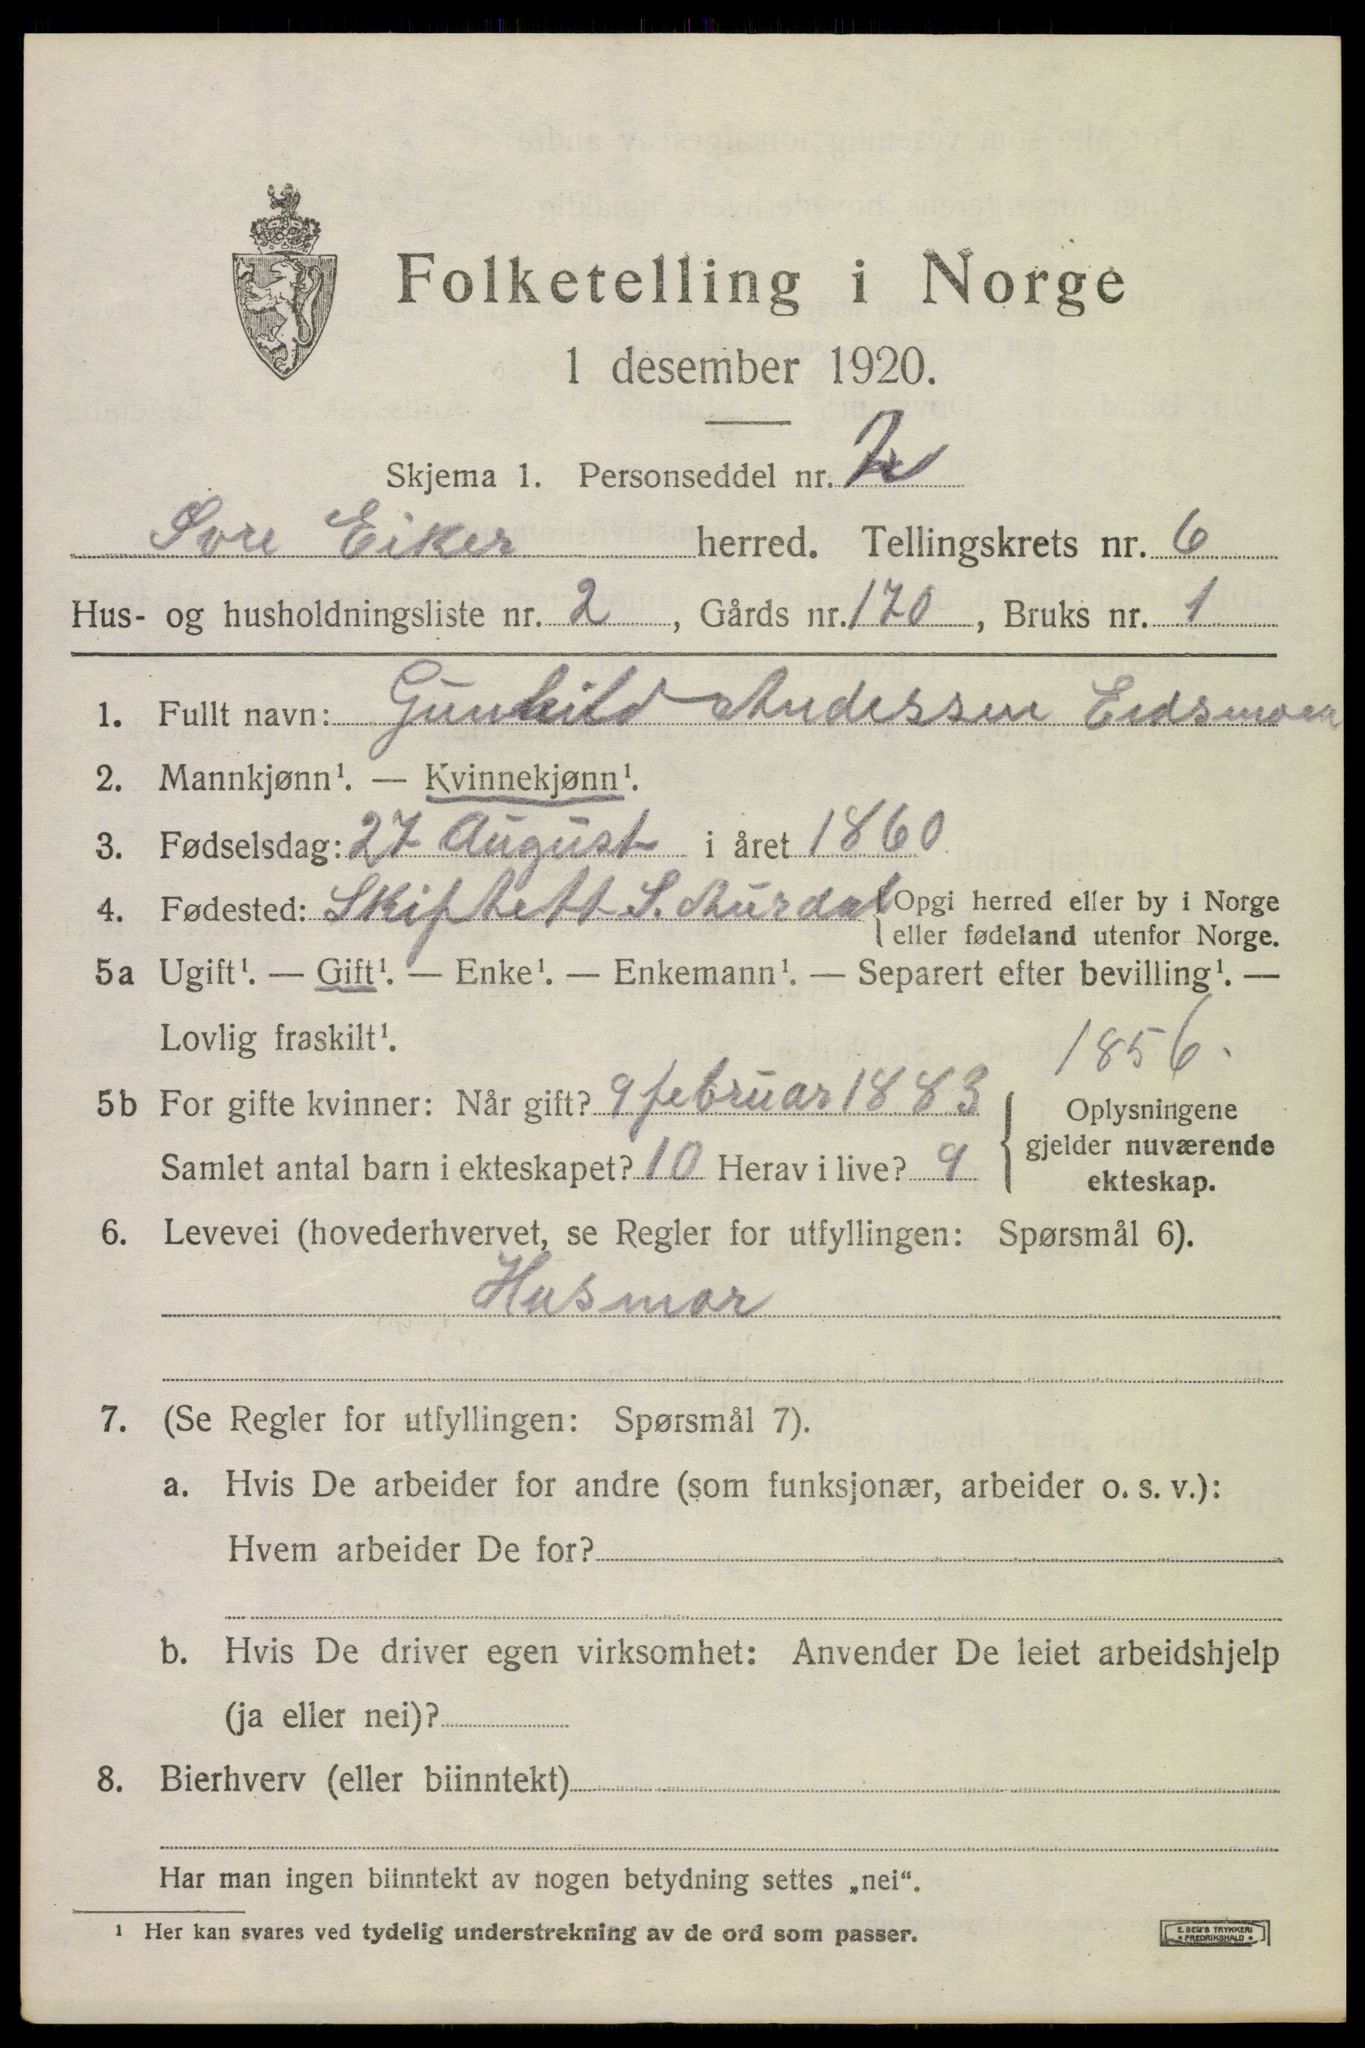 Folketelling i Norge
1 desember 1920.
Skjema 1. Personseddel nr. 2
Øvre Eiker herred. Tellingskrets nr. 6
Hus- og husholdningsliste nr. 2, Gårds nr. 170, Bruks nr. 1
1. Fullt navn: Gunhild Andessen Eidsmoen
2. Mannkjønn¹. — Kvinnekjønn¹.
3. Fødselsdag: 27 August i året 1860
4. Fødested: Skiptett S. Aurdal Opgi herred eller by i Norge
eller fødeland utenfor Norge.
5a Ugift¹. — Gift¹. — Enke¹. — Enkemann¹. — Separert efter bevilling¹. —
Lovlig fraskilt¹.
1856.
5b For gifte kvinner: Når gift? 9 februar 1883
Samlet antal barn i ekteskapet? 10 Herav i live? 9
Oplysningene
gjelder nuværende
ekteskap.
6. Levevei (hovederhvervet, se Regler for utfyllingen: Spørsmål 6).
Husmor
7. (Se Regler for utfyllingen: Spørsmål 7).
a. Hvis De arbeider for andre (som funksjonær, arbeider o. s. v.):
Hvem arbeider De for?
b. Hvis De driver egen virksomhet: Anvender De leiet arbeidshjelp
(ja eller nei)?
8. Bierhverv (eller biinntekt)
Har man ingen biinntekt av nogen betydning settes „nei“.
¹ Her kan svares ved tydelig understrekning av de ord som passer.
E. SEM'S TRYKKERI
• FREDRIKSHALD •